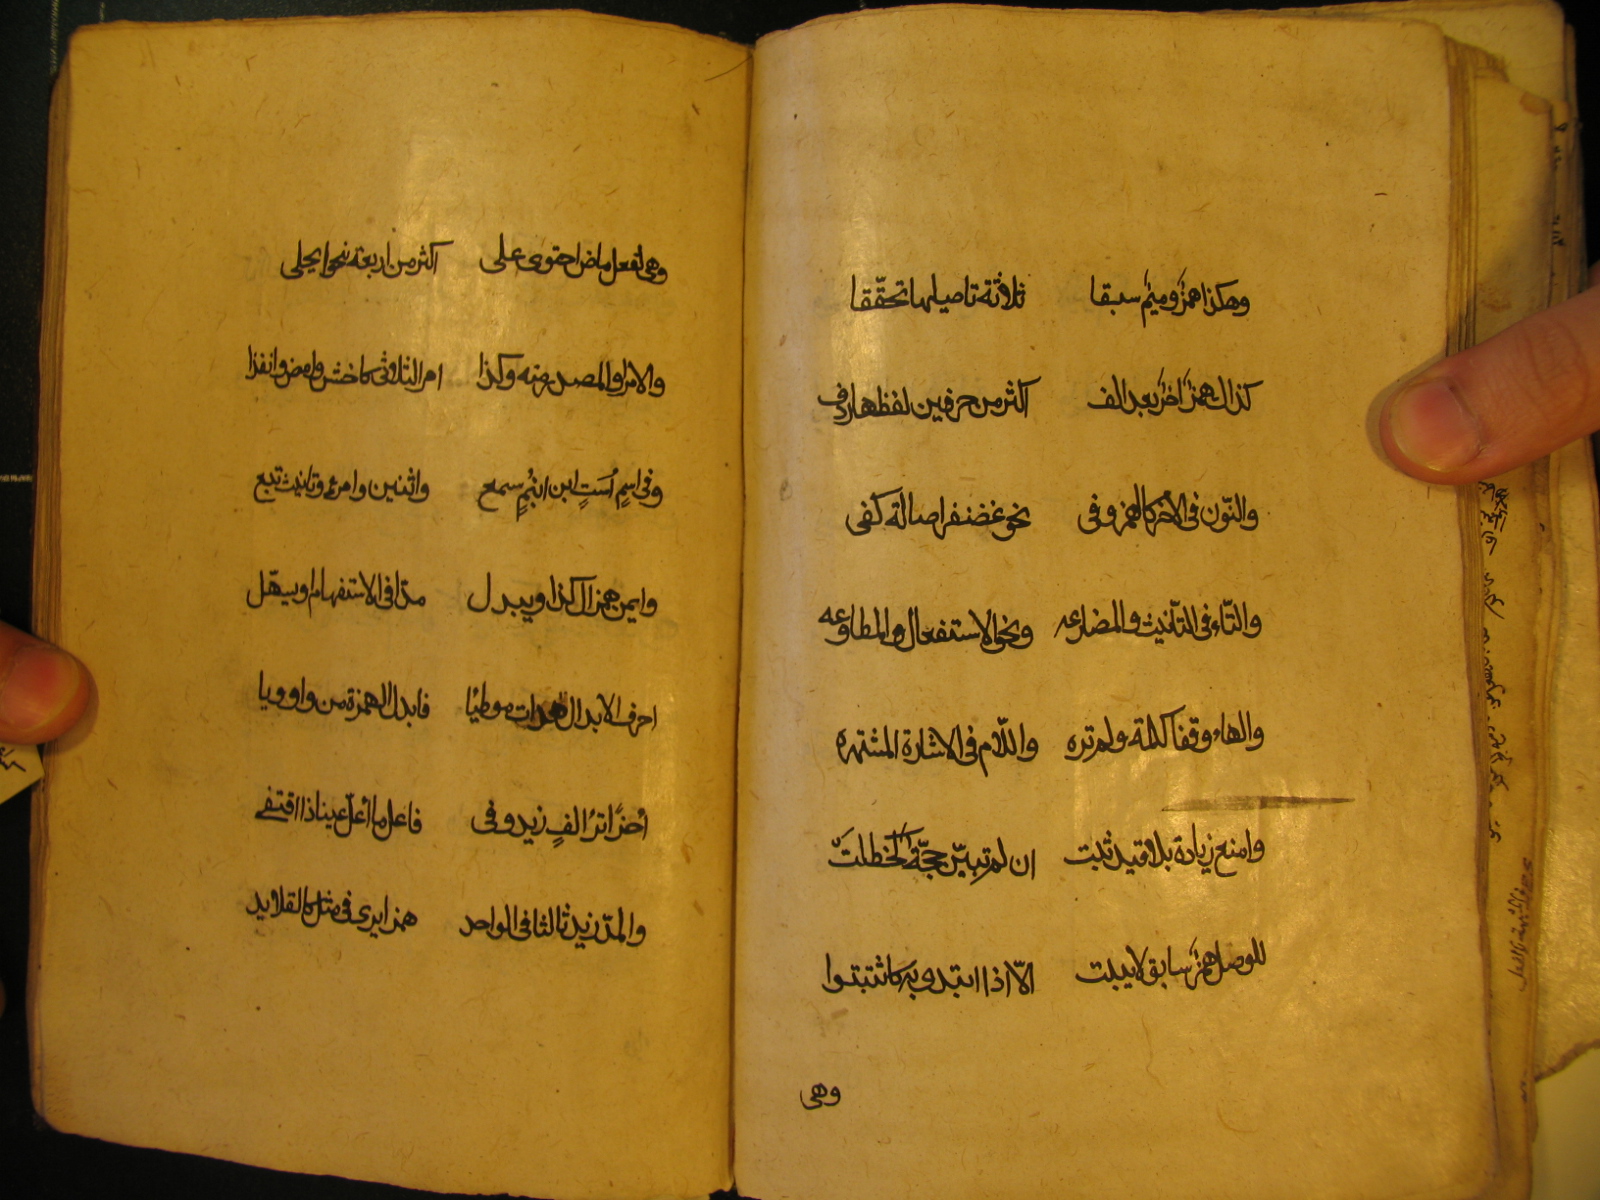 وهكذا همز وميم سبقا ثلاثة تاصيلها تحقّقا
كذاك همز اخر بعد الف اكثر من حرفين لفظها ردف
والنّون فى الاخر كالهمز وفى نحو غضنفر اصالة كفى
والتّاء فى التّأنيث والمضارعه ونحو الاستفعال والمطاوعه
والهاء وقفا كلمة ولم تره واللّام فى الاشارة المشتهره
وامنع زيادة بلا قيد ثبت ان لم تبيّن حجّة كحظلت
للوصل همز سابق لا يثبت الّا اذا ابتدى به كاستثبتوا
وهى
وهى لفعل ماض احتوى على اكثر من اربعة نحو انجلى
والامر والمصدر منه وكذا امر الثلاثى كاخش وامض وانفذا
وفى اسمٍ اُستٍ ابن ابنُمٍ سمع واثنين وامرئ وتانيث تبع
وايمن همز ال كذا ويبدل مدّا فى الاستفهام او يسهّل
احرف الابدال هدات موطيا فابدل الهمزة من واو ويا
اخرًا اثر الفٍ زيد وفى فاعل ما اُعلّ عينا ذا اقتفى
والمدّ زيد ثالثا فى الواحد همزا يرى فى مثل كالقلايد